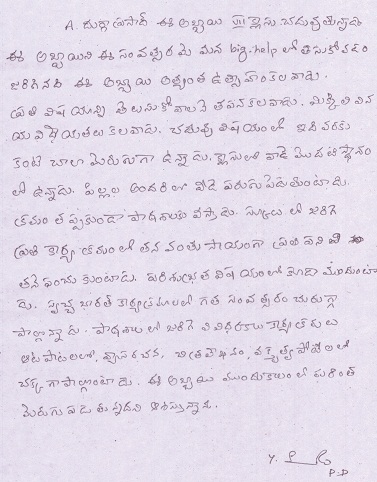 A. దుర్గా ప్రసాద్ ఈ అబ్బాయి VII క్లాసు చదువుతున్నాడు
ఈ అబ్బాయిని ఈ సంవత్సరమే మన big help లో తీసుకోవడం
జరిగినది ఈ అబ్బాయి అత్యంత ఉత్సాహం కలవాడు.
ప్రతి విషయాన్ని తెలుసుకోవాలనే తపన కలవాడు. మిక్కిలి విన
య విధేయతలు కలవాడు. చదువు విషయంలో ఇదివరకు
కంటే చాలా మెరుగుగా ఉన్నాడు. క్లాసులో వాడే మొదటి స్థానం
లో ఉన్నాడు. పిల్లల అందరిలో వీడే చురుకు
క్రమం తప్పకుండా పాఠశాలకు వస్తాడు. స్కూలు లో జరిగే
ప్రతి కార్యక్రమంలో తన వంతు సాయంగా ప్రతి పని
తనే పంచుకుంటాడు. పరిశుభ్రత విషయంలో కూడా ముందుంటా
డు. స్వచ్ఛ భారత్ కార్యక్రమాలలో గత సంవత్సరం చురుగ్గా
పాల్గొన్నాడు. పాఠశాల లో జరిగే వివిధ రకాల కార్యక్రమాలు
ఆటపాటలలో, వ్యాసరచన, చిత్రలేఖనం, వక్తృత్వ పోటీలలో
చక్కగా పాల్గొంటాడు. ఈ అబ్బాయి ముందుకాలంలో మరింత
మెరుగు పడుతున్నదని ఆశిస్తున్నాను.
P.D